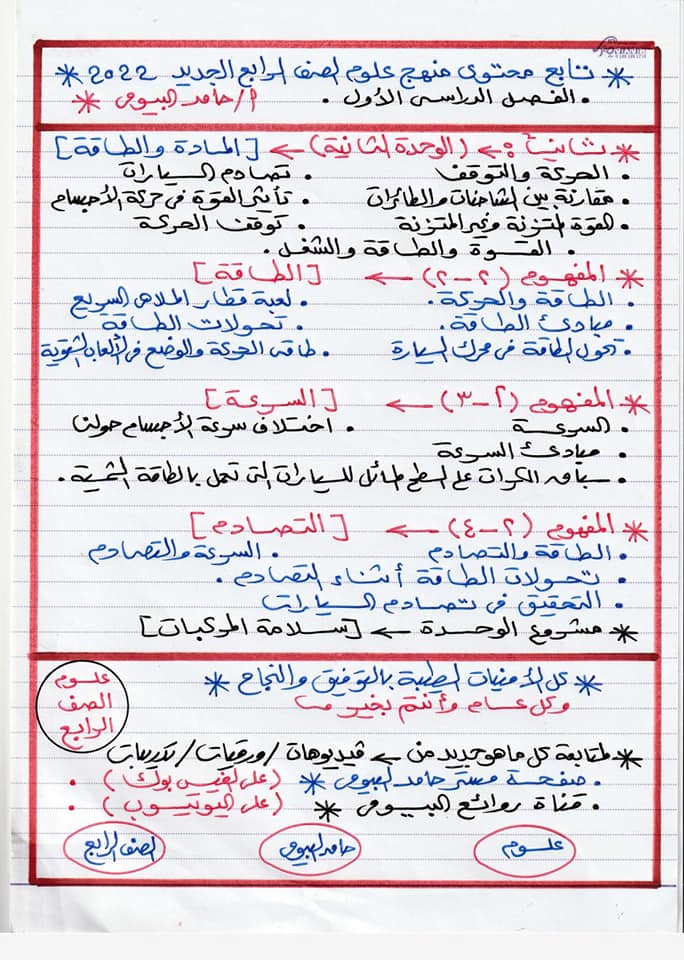 * تابع محتوى منهج علوم الصف الرابع الجديد 2022 *
• الفصل الدراسى الأول • أ/حامد البيومى *
* ثانياً :← (الوحدة الثانية) ← [المادة والطاقة]
• الحركة والتوقف • تصادم السيارات
• مقارنة بين الشاحنات والطائرات • تأثير القوة فى حركة الأجسام
• القوة المتزنة وغير المتزنة • توقف الحركة
• القوة والطاقة والشغل.
* المفهوم (٢-٢) ← [الطاقة]
• الطاقة والحركة. • لعبة قطار الملاهى السريع
• مبادئ الطاقة. • تحولات الطاقة
• تحول الطاقة فى محرك السيارة • طاقتى الحركة والوضع فى الألعاب الشتوية
* المفهوم (٢-٣) ← [السرعة]
• السرعة • اختلاف سرعة الأجسام حولنا
• مبادئ السرعة
• سباق الكرات على السطح المائل للسيارات التى تعمل بالطاقة الشمسية.
* المفهوم (٢-٤) ← [التصادم]
• الطاقة والتصادم • السرعة والتصادم
• تحولات الطاقة أثناء التصادم.
• التحقيق فى تصادم السيارات
* مشروع الوحدة ← [سلامة المركبات]
* كل الأمنيات الطيبة بالتوفيق والنجاح *
وكل عام وأنتم بخير
علوم
الصف
الرابع
* لمتابعة كل ماهو جديد من ← فيديوهات / ورقيات / تدريبات
• صفحة مستر حامد البيومى * (على الفيس بوك) •
• قناة روائع البيومى * (على اليوتيوب) •
علوم حامد البيومى الصف الرابع